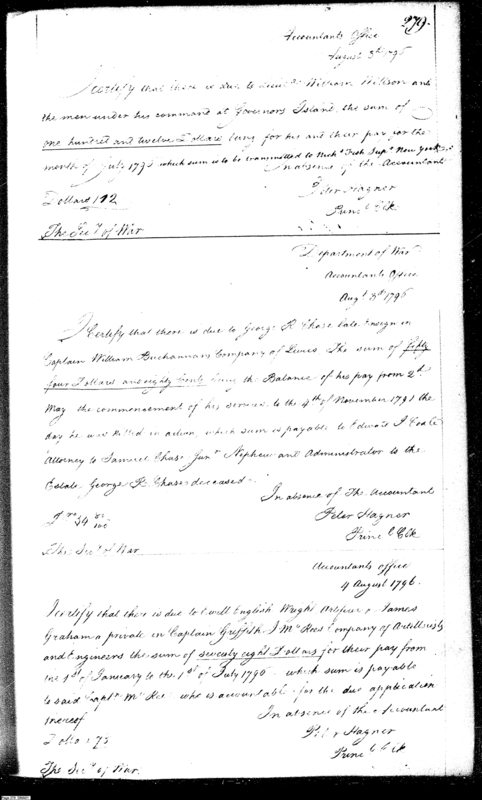 279.
Accountants Office
August 3th 1796
I certify that there is due to Lieut. William Wilson and
the men under his command at Governors Island, the sum of
one hundred and twelve Dollars being for his and their pay for the
month of July 1796 which sum is to be transmitted to Nich.s Fish Sup.r New York
In absence of the Accountant
Peter Hagner
Prinl Clk
Dollars 112
The Secy of War
Department of War
Accountants Office
Augt 3d 1796
I Certify that there is due to George R Chase late Ensign in
Captain William Buchannans Company of Levies The sum of fifty
four Dollars and eighty Cents being the Balance of his pay from 2d
May the commencement of his service to the 4th of November 1791 the
day he was killed in action, which sum is payable to Edward J Coale
Attorney to Samuel Chase Junr Nephew and Administrator to the
Estate George R Chase deceased
In absence of The Accountant
Peter Hagner
Prinl Clk
54 80/100
The Secy of War
Accountants office
4 August 1796.
I certify that there is due to English Wright Artificer & James
Graham a private in Captain Griffith J McRees Company of Artillerists
and Engineers the sum of seventy eight Dollars for their pay from
the 1st of January to the 1st of July 1796 which sum is payable
to said Captn McRee who is accountable for the due application
thereof
In absence of the Accountant
Peter Hagner
Prinl Clk
Dollars 78
The Secy of War.